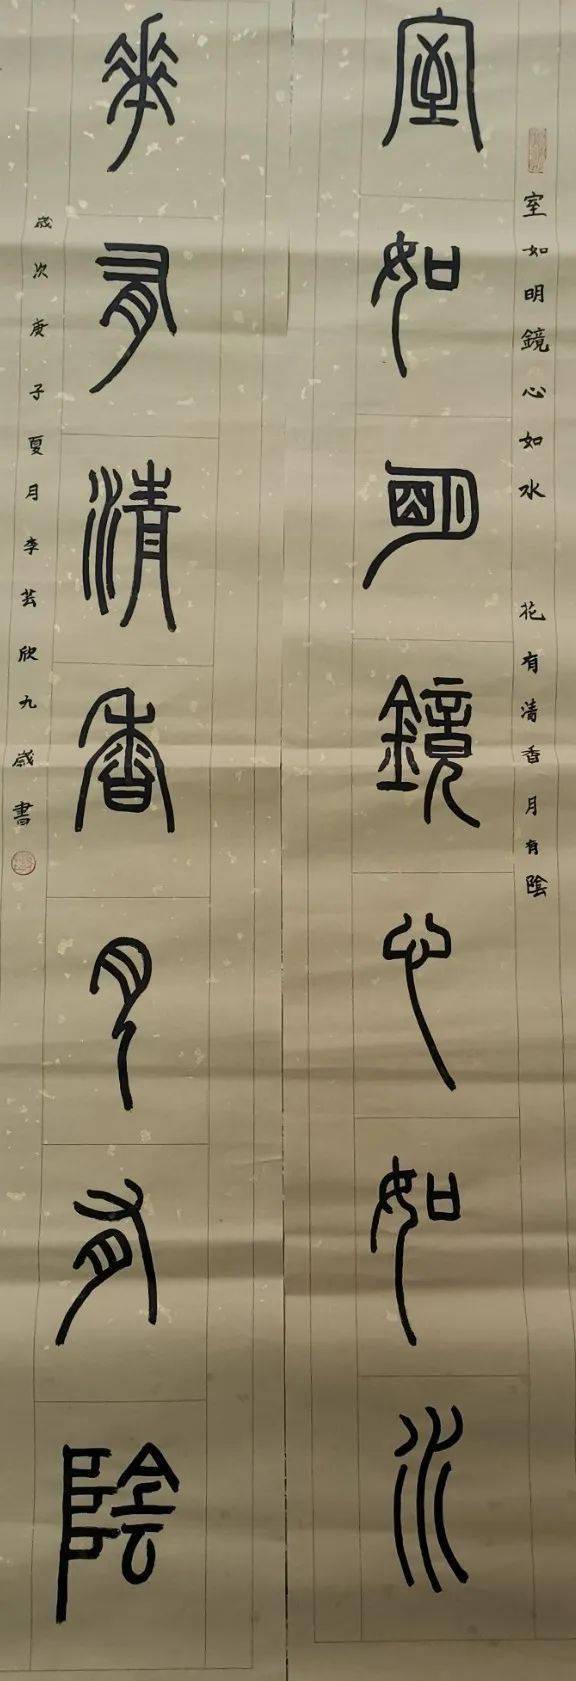 室如明鏡心如水　花有清香月有陰
室如明鏡心如水
華有清香月有陰
歲次庚子夏月李芸欣九歲書